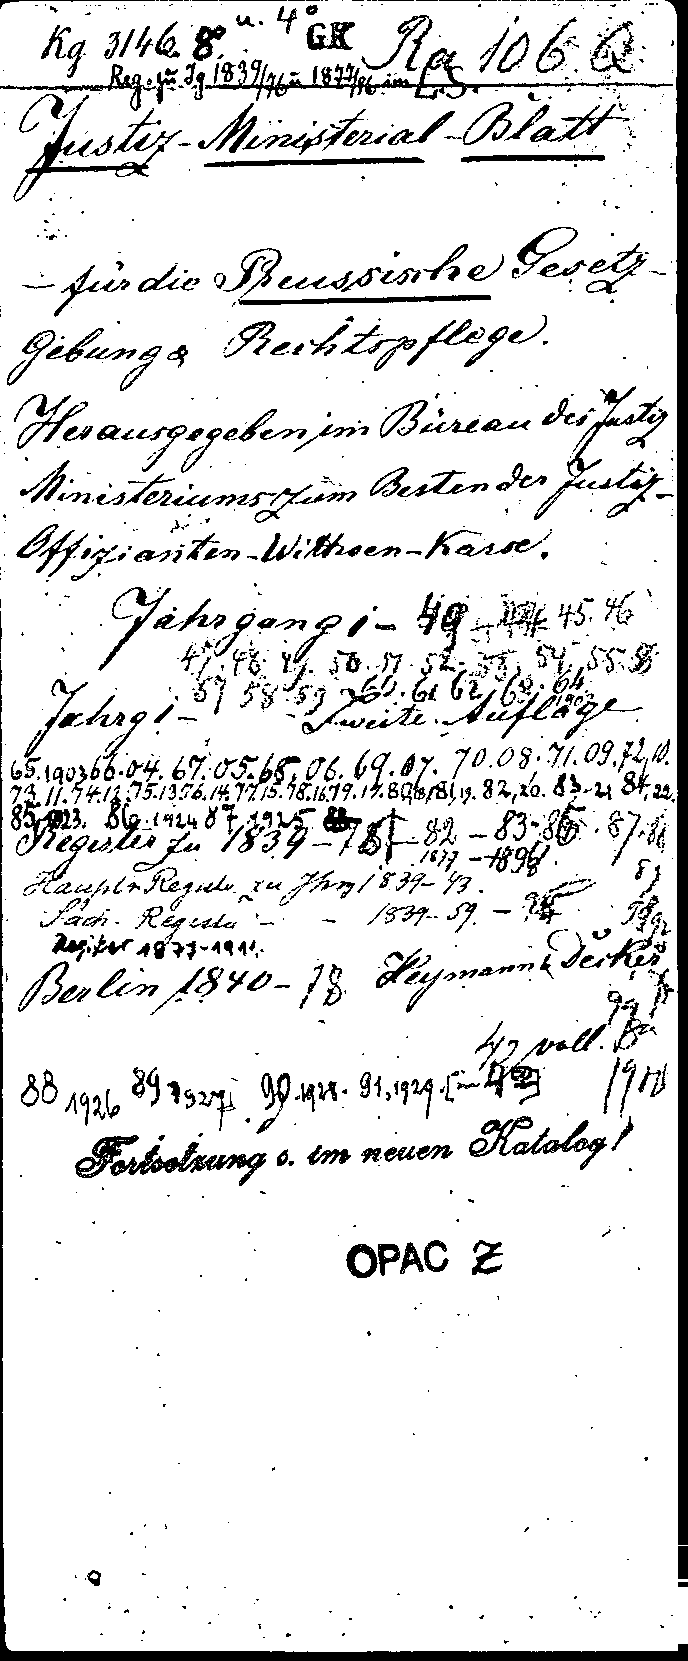 Kg 3146. 8° u. 4° GK Ra 106 Q
Reg. zu Jg 1839/76 u 1877/86 im L.S.
Justiz-Ministerial-Blatt
- für die Preussische Gesetz-
Gebung & Rechtspflege.
Herausgegeben im Büreau des Justiz
Ministeriums zum Besten der Justiz-
Offizianten-Wittwen-Kasse.
Jahrgang 1-49 45. 46
47. 48. 49. 50. 51. 52. 53. 54. 55. 56
57 58 59 60. 61 62, 63. 64
Jahrg 1 - - Zweite Auflage 1902
65.1903 66.04. 67.05. 68. 06. 69. 07. 70. 08. 71. 09. 72, 10.
73. 11. 74. 12. 75. 13. 76. 14. 77. 15. 78. 16. 79. 17. 80, 18, 81, 19. 82, 20. 83. 21 84, 22.
85, 1923. 86. 1924 87, 1925
Register zu 1839-78 - 82 - 83-86. 87. 88
1877-1894. 89
Haupt-Register zu Jhrg 1839-43.
Sach-Register - - 1839-59.
Register 1877-1911.
Berlin 1840-78 Heymann & Decker
47 voll.
88 1926 89 1927, 90. 1928. 91, 1929. 1910
Fortsetzung s. im neuen Katalog!
OPAC Z